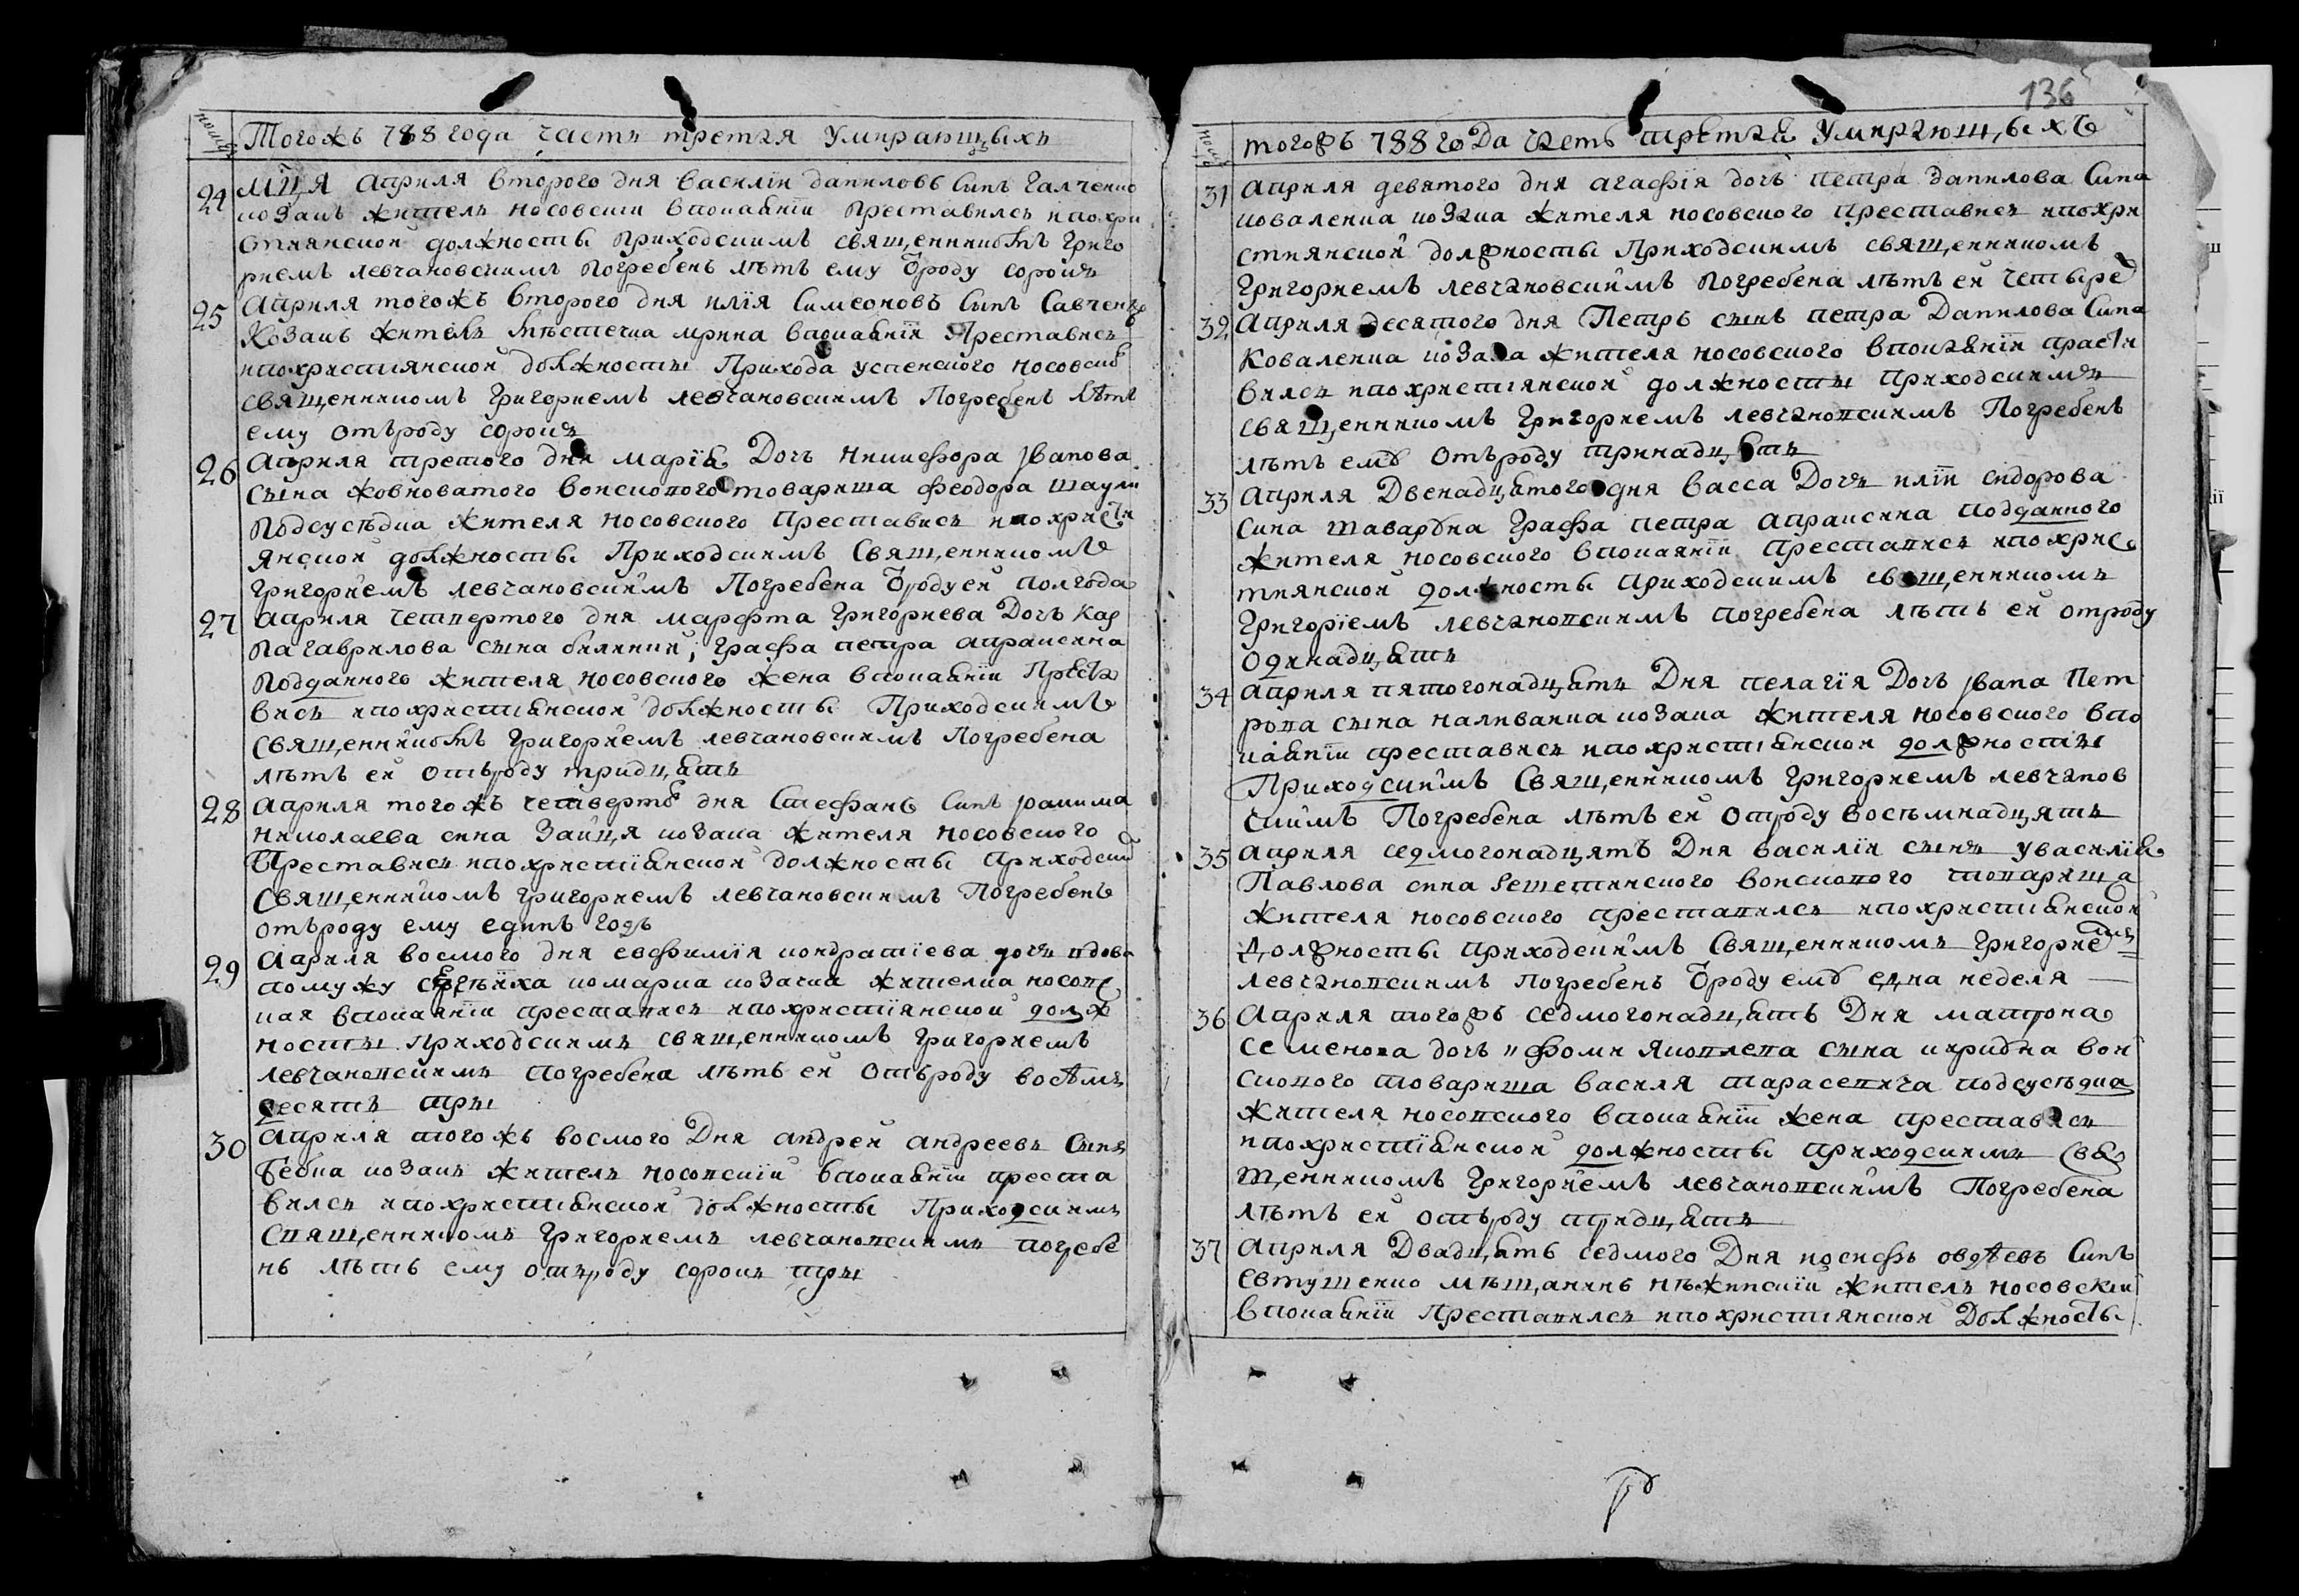 номер
Тогожъ 788 года часть третяя Умирающыхъ
24
Мц,я Априля второго дня василій даниловъ Синъ Галченко
козакъ житель носовскии впокаяніи Преставился ипохри
стиянской должносты Приходскимъ священникомъ Григо
риемъ левчановскимъ Погребенъ лѣтъ ему ѿроду сорокъ
25
Априля тогожъ второго дня илїя Симеоновъ Сынъ Савченко
Козакъ житель мѣстечка мрина впокаянїи Преставися
ипохристиянской должносты Прихода успенского носовского
священникомъ Григориемъ левчановскимъ Погребенъ лѣтъ
ему отъроду сорокъ
26
Априля третого дня марїя Дочь никифора Іванова
сына жовноватого войскового товариша феодора шаули
Подсусѣдка жителя носовского Преставися ипохристи
янской должносты Приходскимъ Священникомъ
Григорїемъ левчановскимъ Погребена ѿроду ей полгода
27
Априля четвертого дня марфта Григориева Дочь Кар
Па гаврилова сына билики; графа петра апраксина
Подданного жителя носовского жена впокаянїи Преста
вися ипохристиянской должносты Приходскимъ
Священникомъ Григорїемъ левчановскимъ Погребена
лѣтъ ей отъроду тридцать
28
Априля тогожъ четверто дня Стефанъ Синъ іоакима
николаева сина Зайця козака жителя носовского
Преставися ипохристїянской должносты Приходски
Священникомъ Григориемъ левчановскимъ Погребенъ
отъроду ему единъ годъ
29
Априля восмого дня евфимїя кондратїева дочь вдова
помужу комарка козачка жителка носовс
кая впокаянїи преставися ипохристїянской долж
носты Приходскимъ священникомъ Григориемъ
левчановскимъ погребена лѣтъ ей отъроду восѣмъ
десятъ тры
30
Априля тогожъ восмого Дня андрей андреевъ Сынъ
козакъ житель носовскїй впокаянїи преста
вился ипохристиянской должносты Приходскимъ
Священникомъ Григориемъ левчановскимъ погребе
нъ лѣтъ ему отъроду сорокъ тры
136
номер
тогожъ 788 года часть третяя Умирающыхъ
31
Априля девятого дня агафїя дочь петра данилова Сина
коваленка козака жителя носовского преставися ипохри
стиянской должносты Приходскимъ священникомъ
Григориемъ левчановскимъ Погребена лѣтъ ей четыре
32
Априля десятого дня Петръ сынъ петра Данилова Сина
Коваленка козака жителя носовского впокаянїи преста
вился ипохристиянской должносты Приходскимъ
священникомъ Григориемъ левчановскимъ Погребенъ
лѣтъ ему отъроду тринадцять
33
Априля Двенадцятого дня васса Дочь илїи сидорова
Сина Графа петра апраксина подданного
жителя носовского впокаянїи преставися ипохрис
тиянской должносты приходскимъ священникомъ
Григорїемъ левчановскимъ погребена лѣтъ ей отроду
одинадцять
34
Априля пятогонадцять Дня пелагїя Дочь Івана Пет
рова сына наливайка козака жителя носовского впо
каянїи преставися ипохристиянской должносты
Приходскимъ Священникомъ Григориемъ левчанов
скимъ Погребена лѣтъ ей отроду восъмнадцять
35
Априля седмогонадцять Дня василїй сынъ увасилїя
Павлова сина Решетинского войскового товариша
жителя носовского преставился ипохристиянской
Должносты приходскимъ Священникомъ Григориемъ
левчановскимъ Погребенъ ѿроду ему една неделя
36
Априля тогожъ седмогонадцять Дня матрона
Семенова дочь Фоми Яковлева сына вой
скового товариша василя тарасевича подсусѣдка
жителя носовского впокаянїи жена преставися
ипохристїянской должносты приходскимъ Свя
щенникомъ Григорїемъ левчановскимъ Погребена
лѣтъ ей отъроду тридцять
37
Априля Двадцять седмого Дня иосифъ овдѣевъ Синъ
Евтушенко мѣщанинъ нѣжинскїй житель носовский
впокаянїи Преставился ипохристиянской Должносты